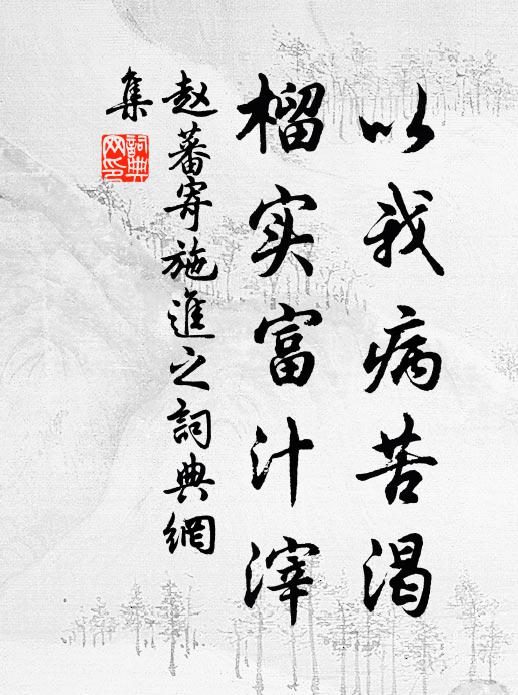 以我病苦渴
榴实富汁滓
赵蕃寄施進之詞典網
集
詞典
网印